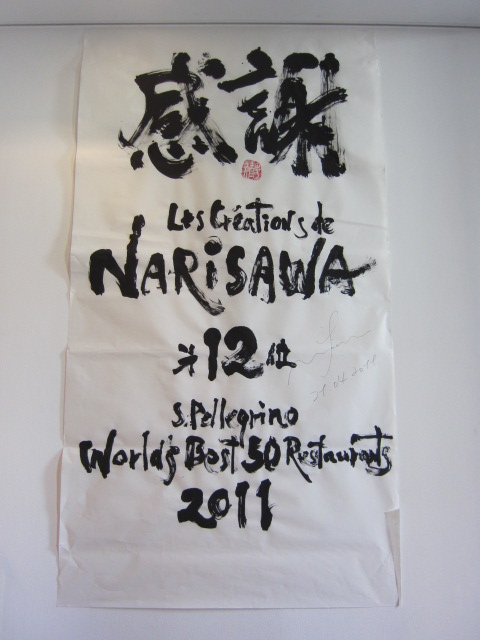 感謝
Les Créations de
NARiSAWA
第12位
S.Pellegrino
World's Best 50 Restaurants
2011